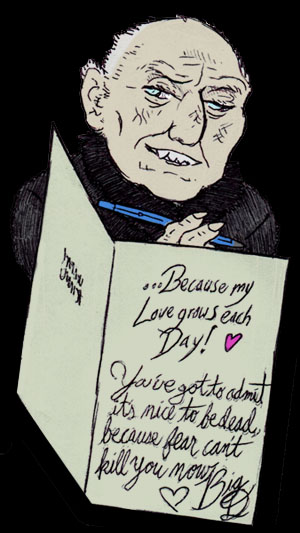 ...Because my
Love grows each
Day! ♥
You've got to admit
it's nice to be dead,
because fear can't
kill you now. Big
♡ D